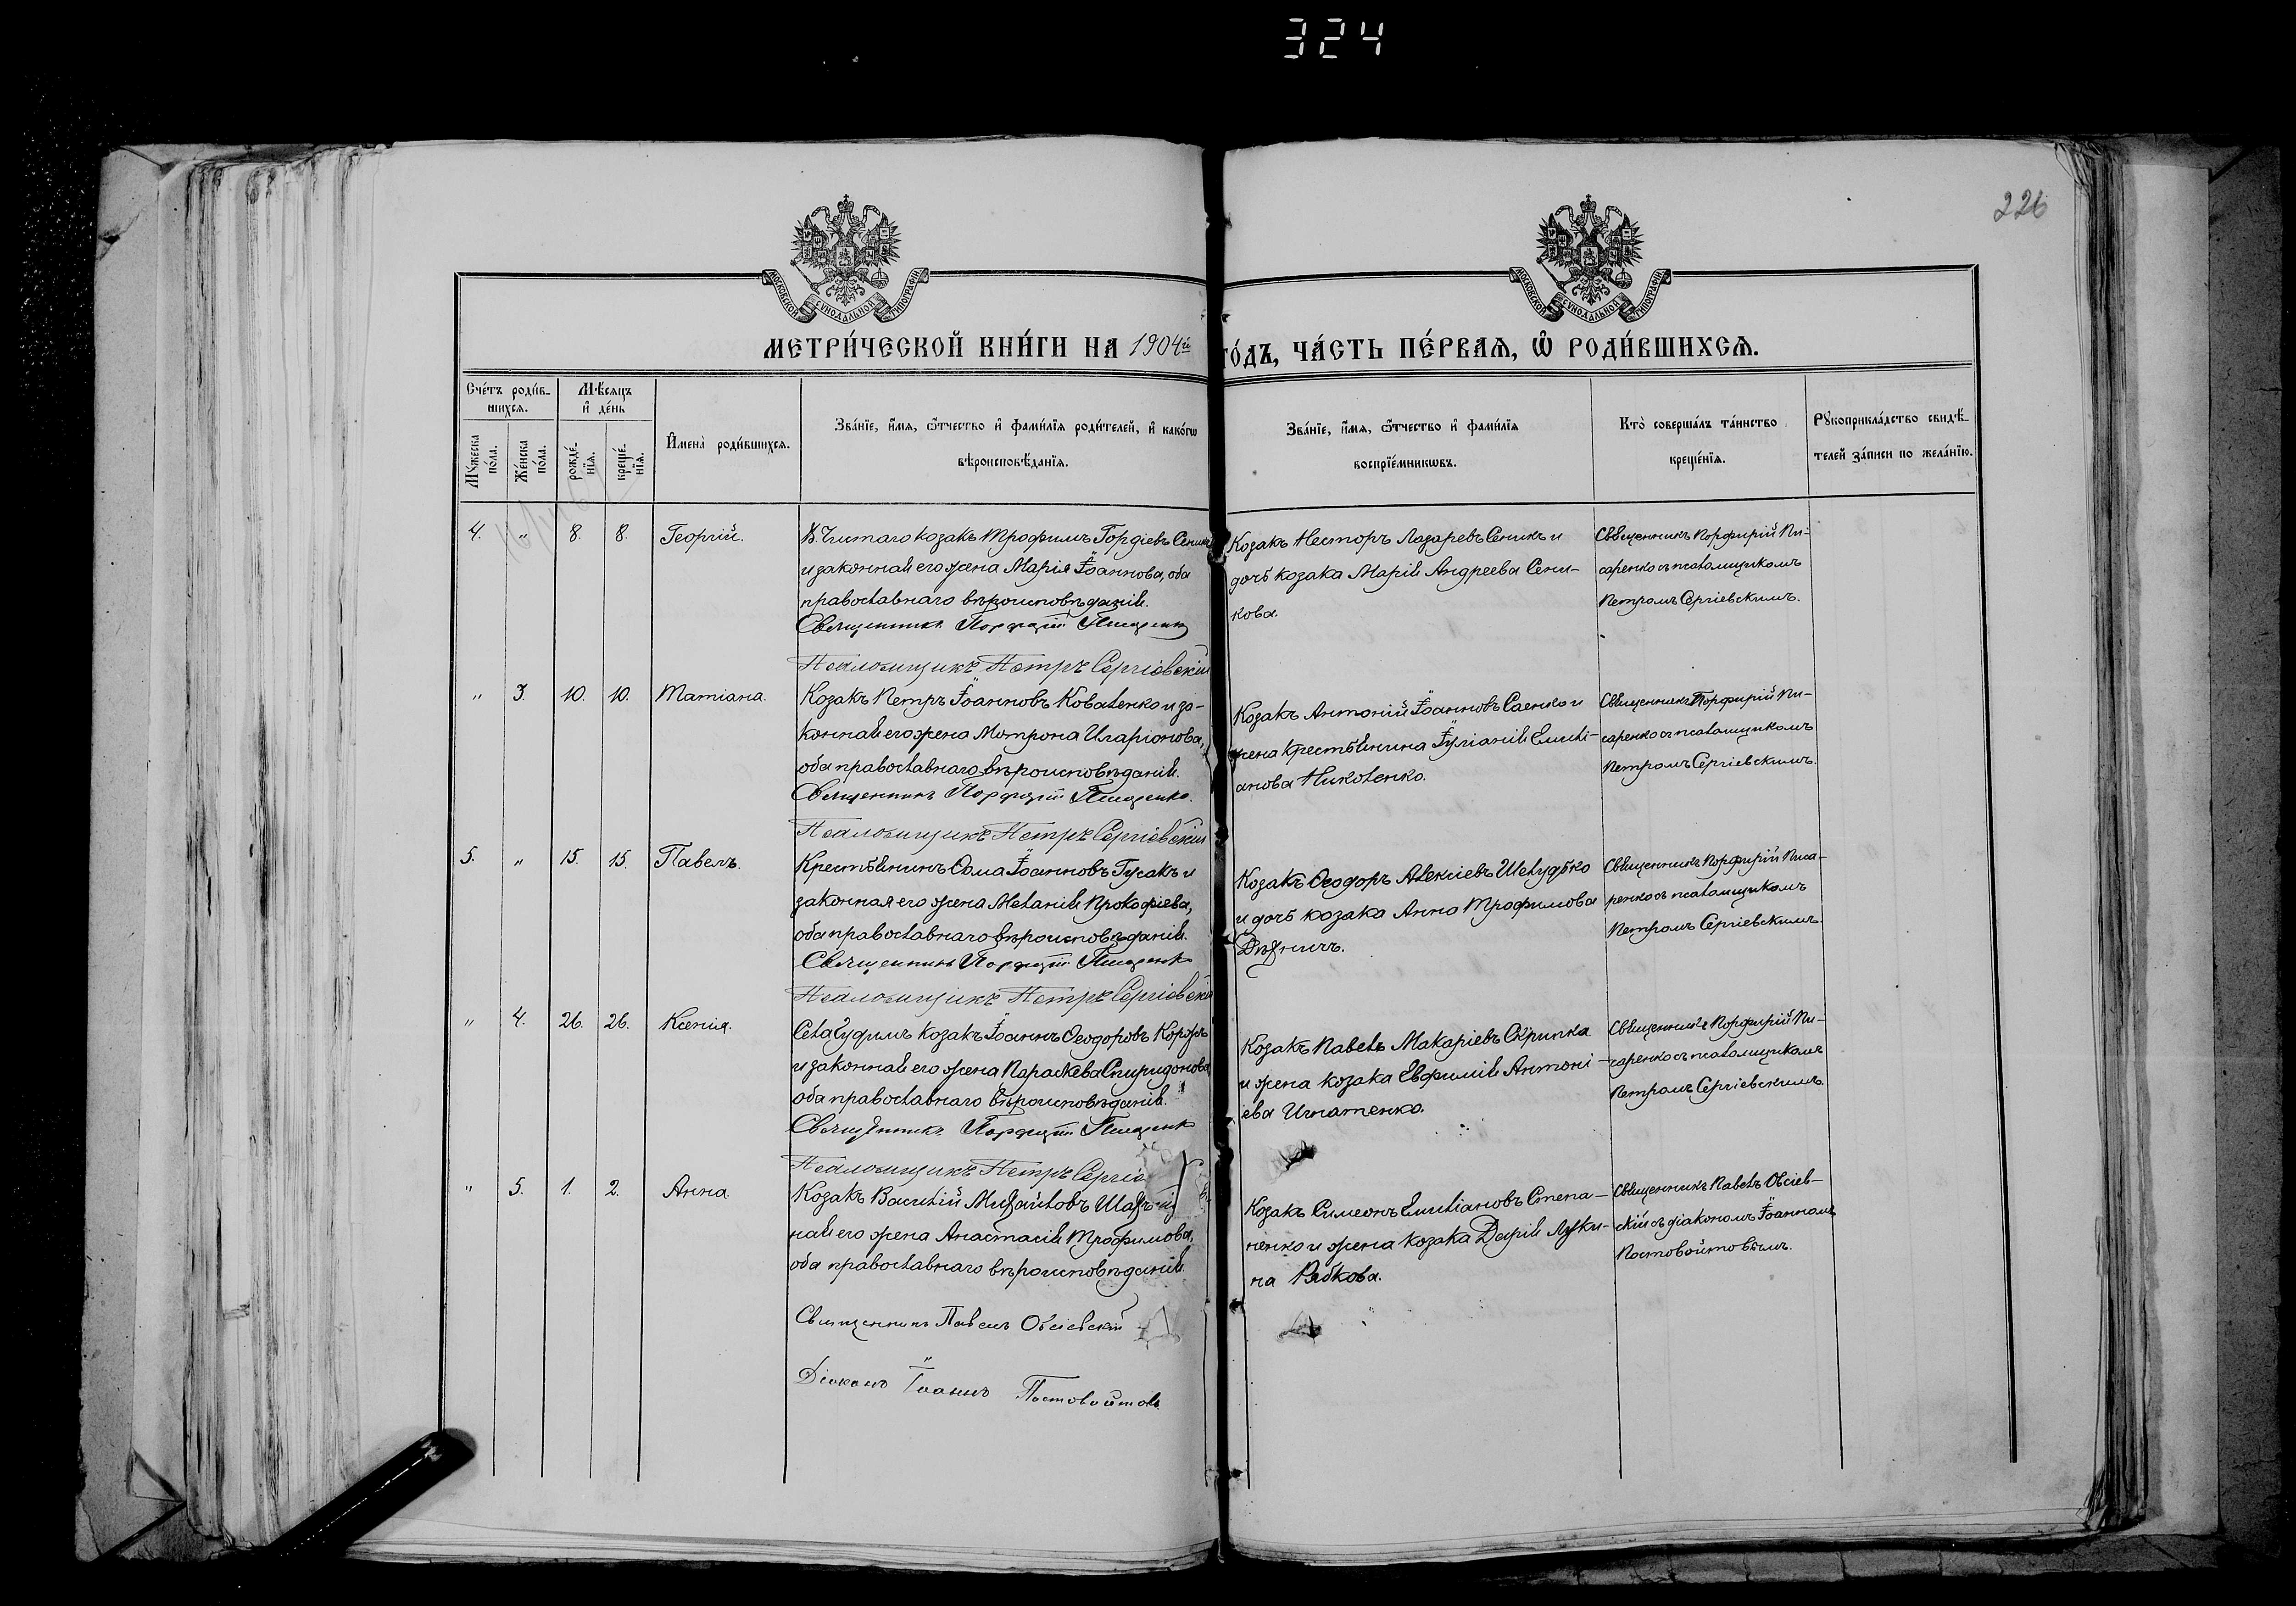 324
226
МОСКОВСКОЙ СУНОДАЛЬНОЙ ТИПОГРАФІИ
МОСКОВСКОЙ СУНОДАЛЬНОЙ ТИПОГРАФІИ
МЕТРИ́ЧЕСКОЙ КНИ́ГИ НА 1904й
ГО́ДЪ, ЧА́СТЬ ПЕ́РВАѦ, Ѽ РОДИ́ВШИХСѦ.
Счéтъ роди́в-
шихсѧ.
Мѣ́сѧцъ
и҆ дéнь
Мꙋ́жеска пóла.
Жéнска пóла.
рождé-
нїѧ.
крещé-
нїѧ.
И҆менà роди́вшихсѧ.
Звáнїе, и҆́мѧ, ѻ҆́тчество и҆ фами́лїѧ роди́телей, и҆ какóгѡ
вѣроисповѣ́данїѧ.
Звáнїе, и҆́мѧ, ѻ҆́тчество и҆ фами́лїѧ
воспрїéмникѡвъ.
Ктò совершáлъ тáинство
крещéнїѧ.
Рꙋкоприклáдство свидѣ́-
телей зáписи по желáнїю.
4. " 8. 8. Георгій.
козакъ Трофимъ Гордіевъ Сеник
и законная его жена Марія Іоаннова, оба
православнаго вѣроисповѣданія.
Священникъ Порфирій Писаренко
Псаломщикъ Петръ Сергіевскій
Козакъ Несторъ Лазаревъ Сеникъ и
дочь козака Марія Андреева Сени-
кова.
Священникъ Порфирій Пи-
саренко съ псаломщикомъ
Петромъ Сергіевскимъ.
" 3. 10. 10. Татіана.
Козакъ Петръ Іоанновъ Коваленко и за-
конная его жена Мотрона Иларіонова,
оба православнаго вѣроисповѣданія.
Священникъ Порфирій Писаренко.
Псаломщикъ Петръ Сергіевскій
Козакъ Антоній Іоанновъ Саенко и
жена крестьянина Іуліанія Емили-
анова Николенко.
Священникъ Порфирій Пи-
саренко съ псаломщикомъ
Петромъ Сергіевскимъ.
5. " 15. 15. Павелъ.
Крестьянинъ Ѳома Іоанновъ Гусакъ и
законная его жена Меланія Прокофіева,
оба православнаго вѣроисповѣданія.
Священникъ Порфирій Писаренко
Псаломщикъ Петръ Сергіевскій
Козакъ Ѳеодоръ Алексіевъ Шелудько
и дочь козака Анна Трофимова
Священникъ Порфирій Писа-
ренко съ псаломщикомъ
Петромъ Сергіевскимъ.
" 4. 26. 26. Ксенія.
Села козакъ Іоаннъ Ѳеодоровъ Коржъ
и законная его жена Параскева Спиридонова,
оба православнаго вѣроисповѣданія.
Священникъ Порфирій Писаренко
Псаломщикъ Петръ Сергіе
Козакъ Павелъ Макаріевъ Скрипка
и жена козака Евфимія Антоні-
ева Игнатенко.
Священникъ Порфирій Пи-
саренко съ псаломщикомъ
Петромъ Сергіевскимъ.
" 5. 1. 2. Анна.
Козакъ Василій Михайловъ
ная его жена Анастасія Трофимова,
оба православнаго вѣроисповѣданія.
Священникъ Павелъ Овсіевскій
Діаконъ Іоаннъ Постовойтовъ
Козакъ Симеонъ Емиліановъ Степа-
ненко и жена козака Дарія Луки-
на Рябкова.
Священникъ Павелъ Овсіев-
скій съ діакономъ Іоанномъ
Постовойтовымъ.